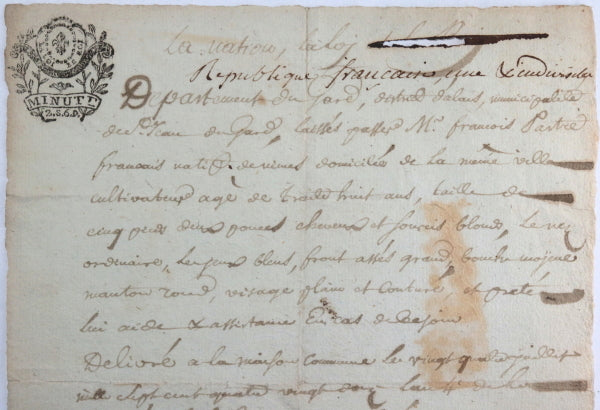 MINUTE
2.S.6.D.
la nation, la loy
Republique française une & indivisible
Departement du Gard, district dalais, municipalité
de St Jean du Gard, laissés passer Mr. francois Partie
francais natif de nimes domicilié de la meme ville
cultivateur agé de trante huit ans, taille de
cinq pieds deux pouces cheveux et sourcis blonds, le nez
ordinaire, les yeux bleus, front assés grand, bouche mojene
manton rond, visage plain et couturé, et preté
lui aide & assistance En cas de besoin
Delivré a la maison commune le vingt quatre juillet
mille sept cent quatre vingt douze lan 4e de la